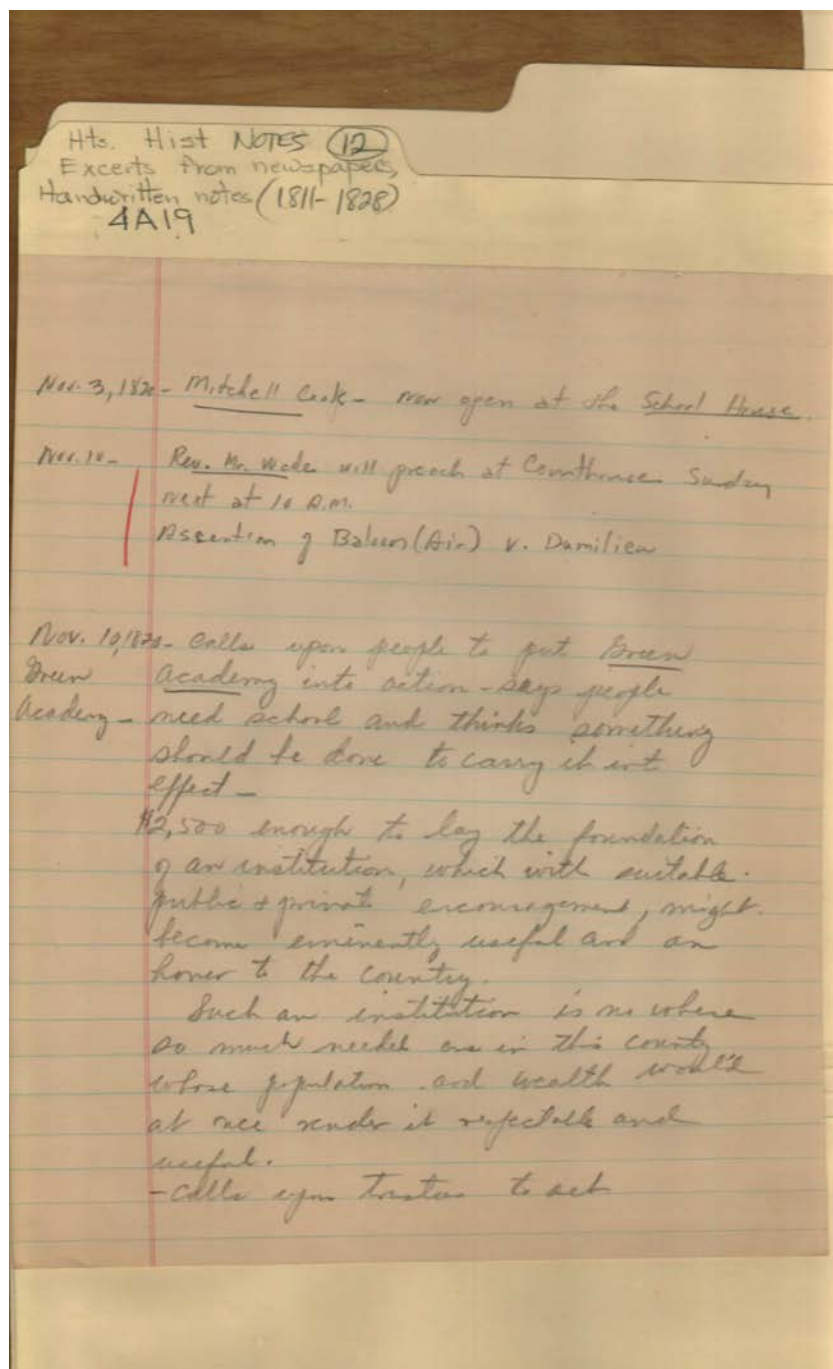 Hts. Hist NOTES (12)
Excerts from newspapers,
Handwritten notes (1811-1828)
4A19
Nov. 3, 1820 - Mitchell Cook - now open at the School House.
Nov. 10 - Rev. Mr. Wade will preach at Courthouse Sunday
next at 10 A.M.
Ascention of Baloon (Air) v. Dumilieu
Nov. 10, 1820 - Calls upon people to put Green
Green Academy into action - says people
Academy - need school and thinks something
should be done to carry it int
effect -
$2,500 enough to lay the foundation
of an institution, which with suitable
public & private encouragement, might
become eminently useful and an
honor to the country.
Such an institution is no where
so much needed as in this county
whose population and wealth would
at once render it respectable and
useful.
- Calls upon trustees to act